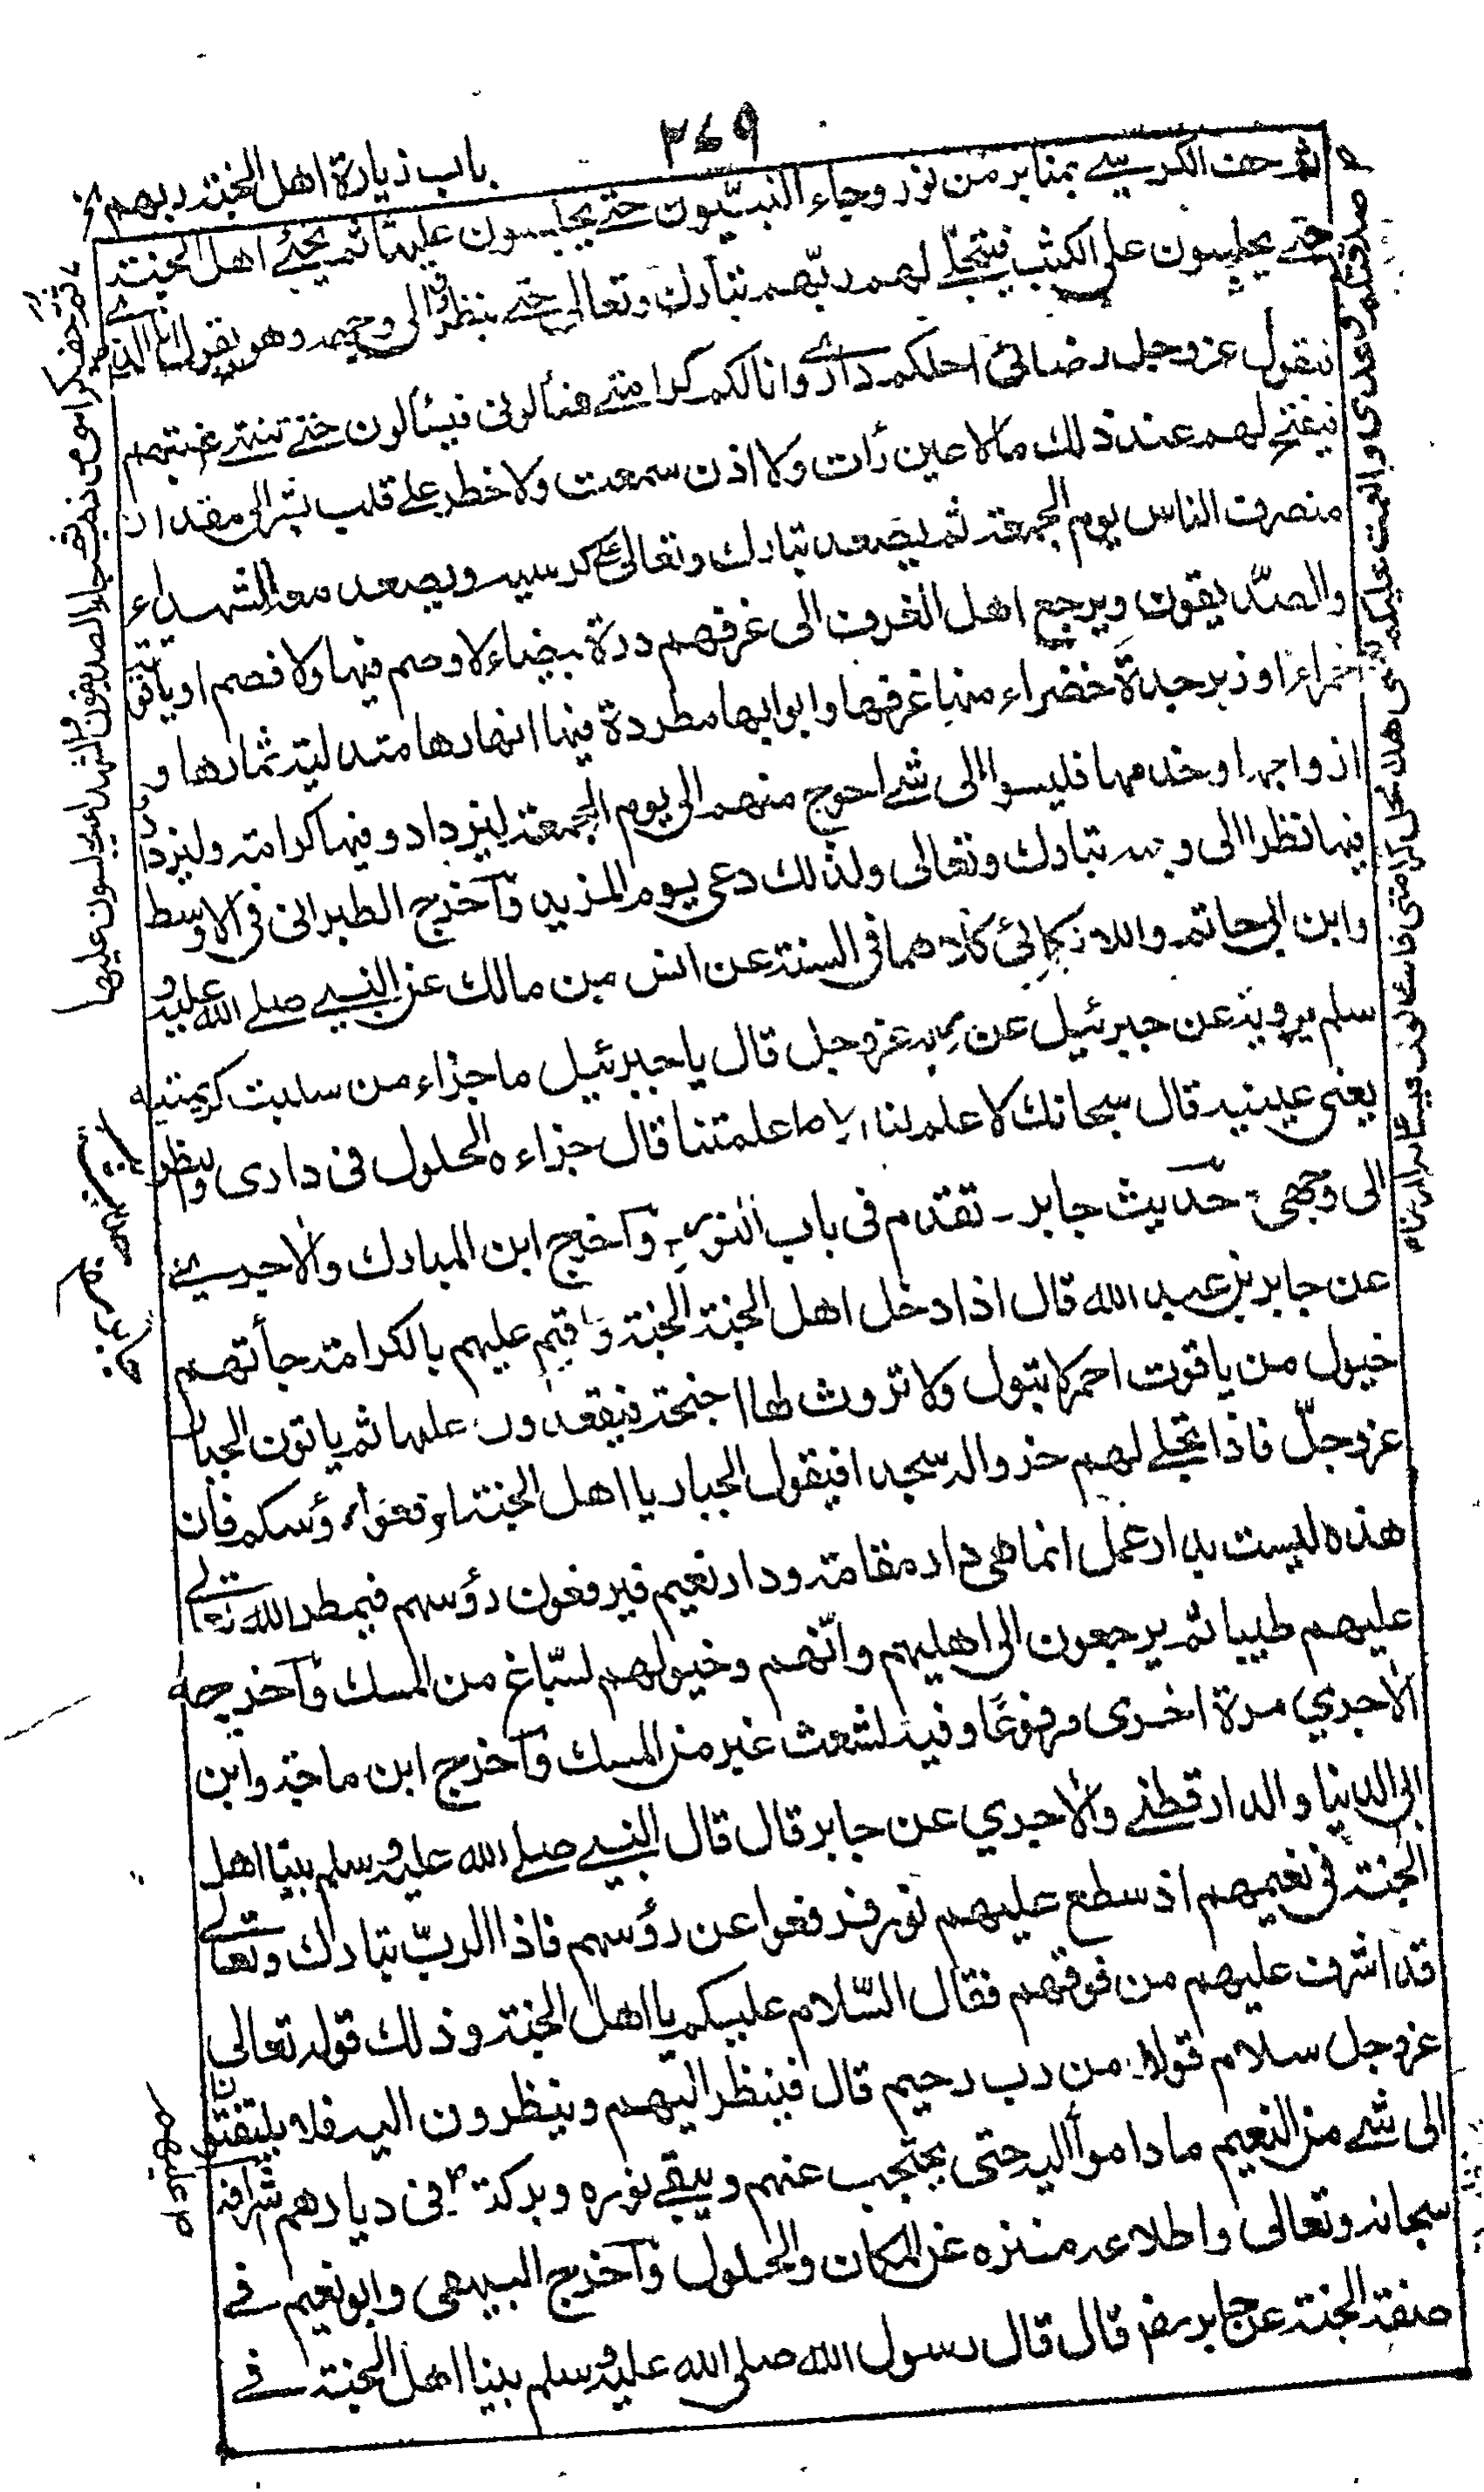 ٢٦٩
باب زيارة اهل الجنة ربهم
ثم حف الكرسي بمنابر من نور وجاء النبيّون حتى يجلسون عليها ثم يجئ اهل الجنة
حتى يجلسون على الكثب فيتجلّى لهم ربّهم تبارك وتعالى حتى ينظروا الى وجهه وهو يقول انا الذى
صدقتكم وعدى واتممت عليكم نعمتى هذا محل كرامتى فاسئالونى فيسئالونه الرضاء
فيقول عزوجل رضائى احلكم دارى وانالكم كرامتى فسألونى فيسألون حتى تنتهى رغبتهم
فيفتح لهم عند ذلك مالا عين رأت ولا اذن سمعت ولا خطر على قلب بشر الى مقدار
منصرف الناس يوم الجمعة ثم يصعد تبارك وتعالى على كرسيه ويصعد معه الشهداء
والصدّيقون ويرجع اهل الغرف الى غرفهم درة بيضاء لا وصم فيها ولا فصم او ياقوتة
حمراء او زبرجدة خضراء منها غرفها وابوابها مطردة فيها انهارها متدلية ثمارها و
ازواجها وخدمها فليسوا الى شئ احوج منهم الى يوم الجمعة ليزدادوفيها كرامته وليزدادوا
فيها نظرا الى وجهه تبارك وتعالى ولذلك دعى يوم المزيد وآخرج الطبرانى فى الاوسط
وابن ابى حاتم واللالكائى كلاهما فى السنة عن انس بن مالك عن النبى صلے الله عليه و
سلم يرويه عن جبرئيل عن ربه عزوجل قال يا جبرئيل ما جزاء من سلبت كريمتيه
يعنى عينيه قال سبحانك لا علم لنا الا ما علمتنا قال جزاءه الحلول فى دارى والنظر
الى وجهى - حديث جابر - تقدم فى باب النور وآخرج ابن المبارك والاجرى
عن جابر بن عبد الله قال اذا دخل اهل الجنة الجنة واقيم عليهم بالكرامة جأتهم
خيول من ياقوت احمر لا تبول ولا تروث لها اجنحة فيقعدون عليها ثم ياتون الجبار
عزوجلّ فاذا تجلے لهم خروا له سجدا فيقول الجبار يا اهل الجنة ارفعوا رؤسكم فان
هذه ليست بدار عمل انما هى دار مقامة ودار نعيم فيرفعون رؤسهم فيمطر الله تعالى
عليهم طيبا ثم يرجعون الى اهليهم وانّهم وخيولهم لسبّاغ من المسك وآخرجه
الاجري مرة اخرى مرفوعًا وفيه لشعث غبر من المسك وآخرج ابن ماجة وابن
ابى الدنيا والدارقطنے والاجري عن جابر قال قال النبى صلے الله عليه وسلم بينا اهل
الجنة فى نعيمهم اذ سطع عليهم نور فرفعوا عن رؤسهم فاذا الربّ تبارك وتعالے
قد اشرف عليهم من فوقهم فقال السّلام عليكم يا اهل الجنة وذلك قوله تعالى
عزوجل سلام قولا من رب رحيم قال فينظر اليهم وينظرون اليه فلا يلتفتون
الى شئ من النعيم ما داموا اليه حتى يحتجب عنهم ويبقے نوره وبركته فى ديارهم اشرافه
سبحانه وتعالى واطلاعه منزه عن المكان والحلول وآخرج البيهقى وابو نعيم فى
صفة الجنة عن جابر رضى قال قال رسول الله صلى الله عليه وسلم بينا اهل الجنة فے
ثم حف كراسى من ذهب فجاء الصديقون والشهداء يجلسون عليها
عليهم